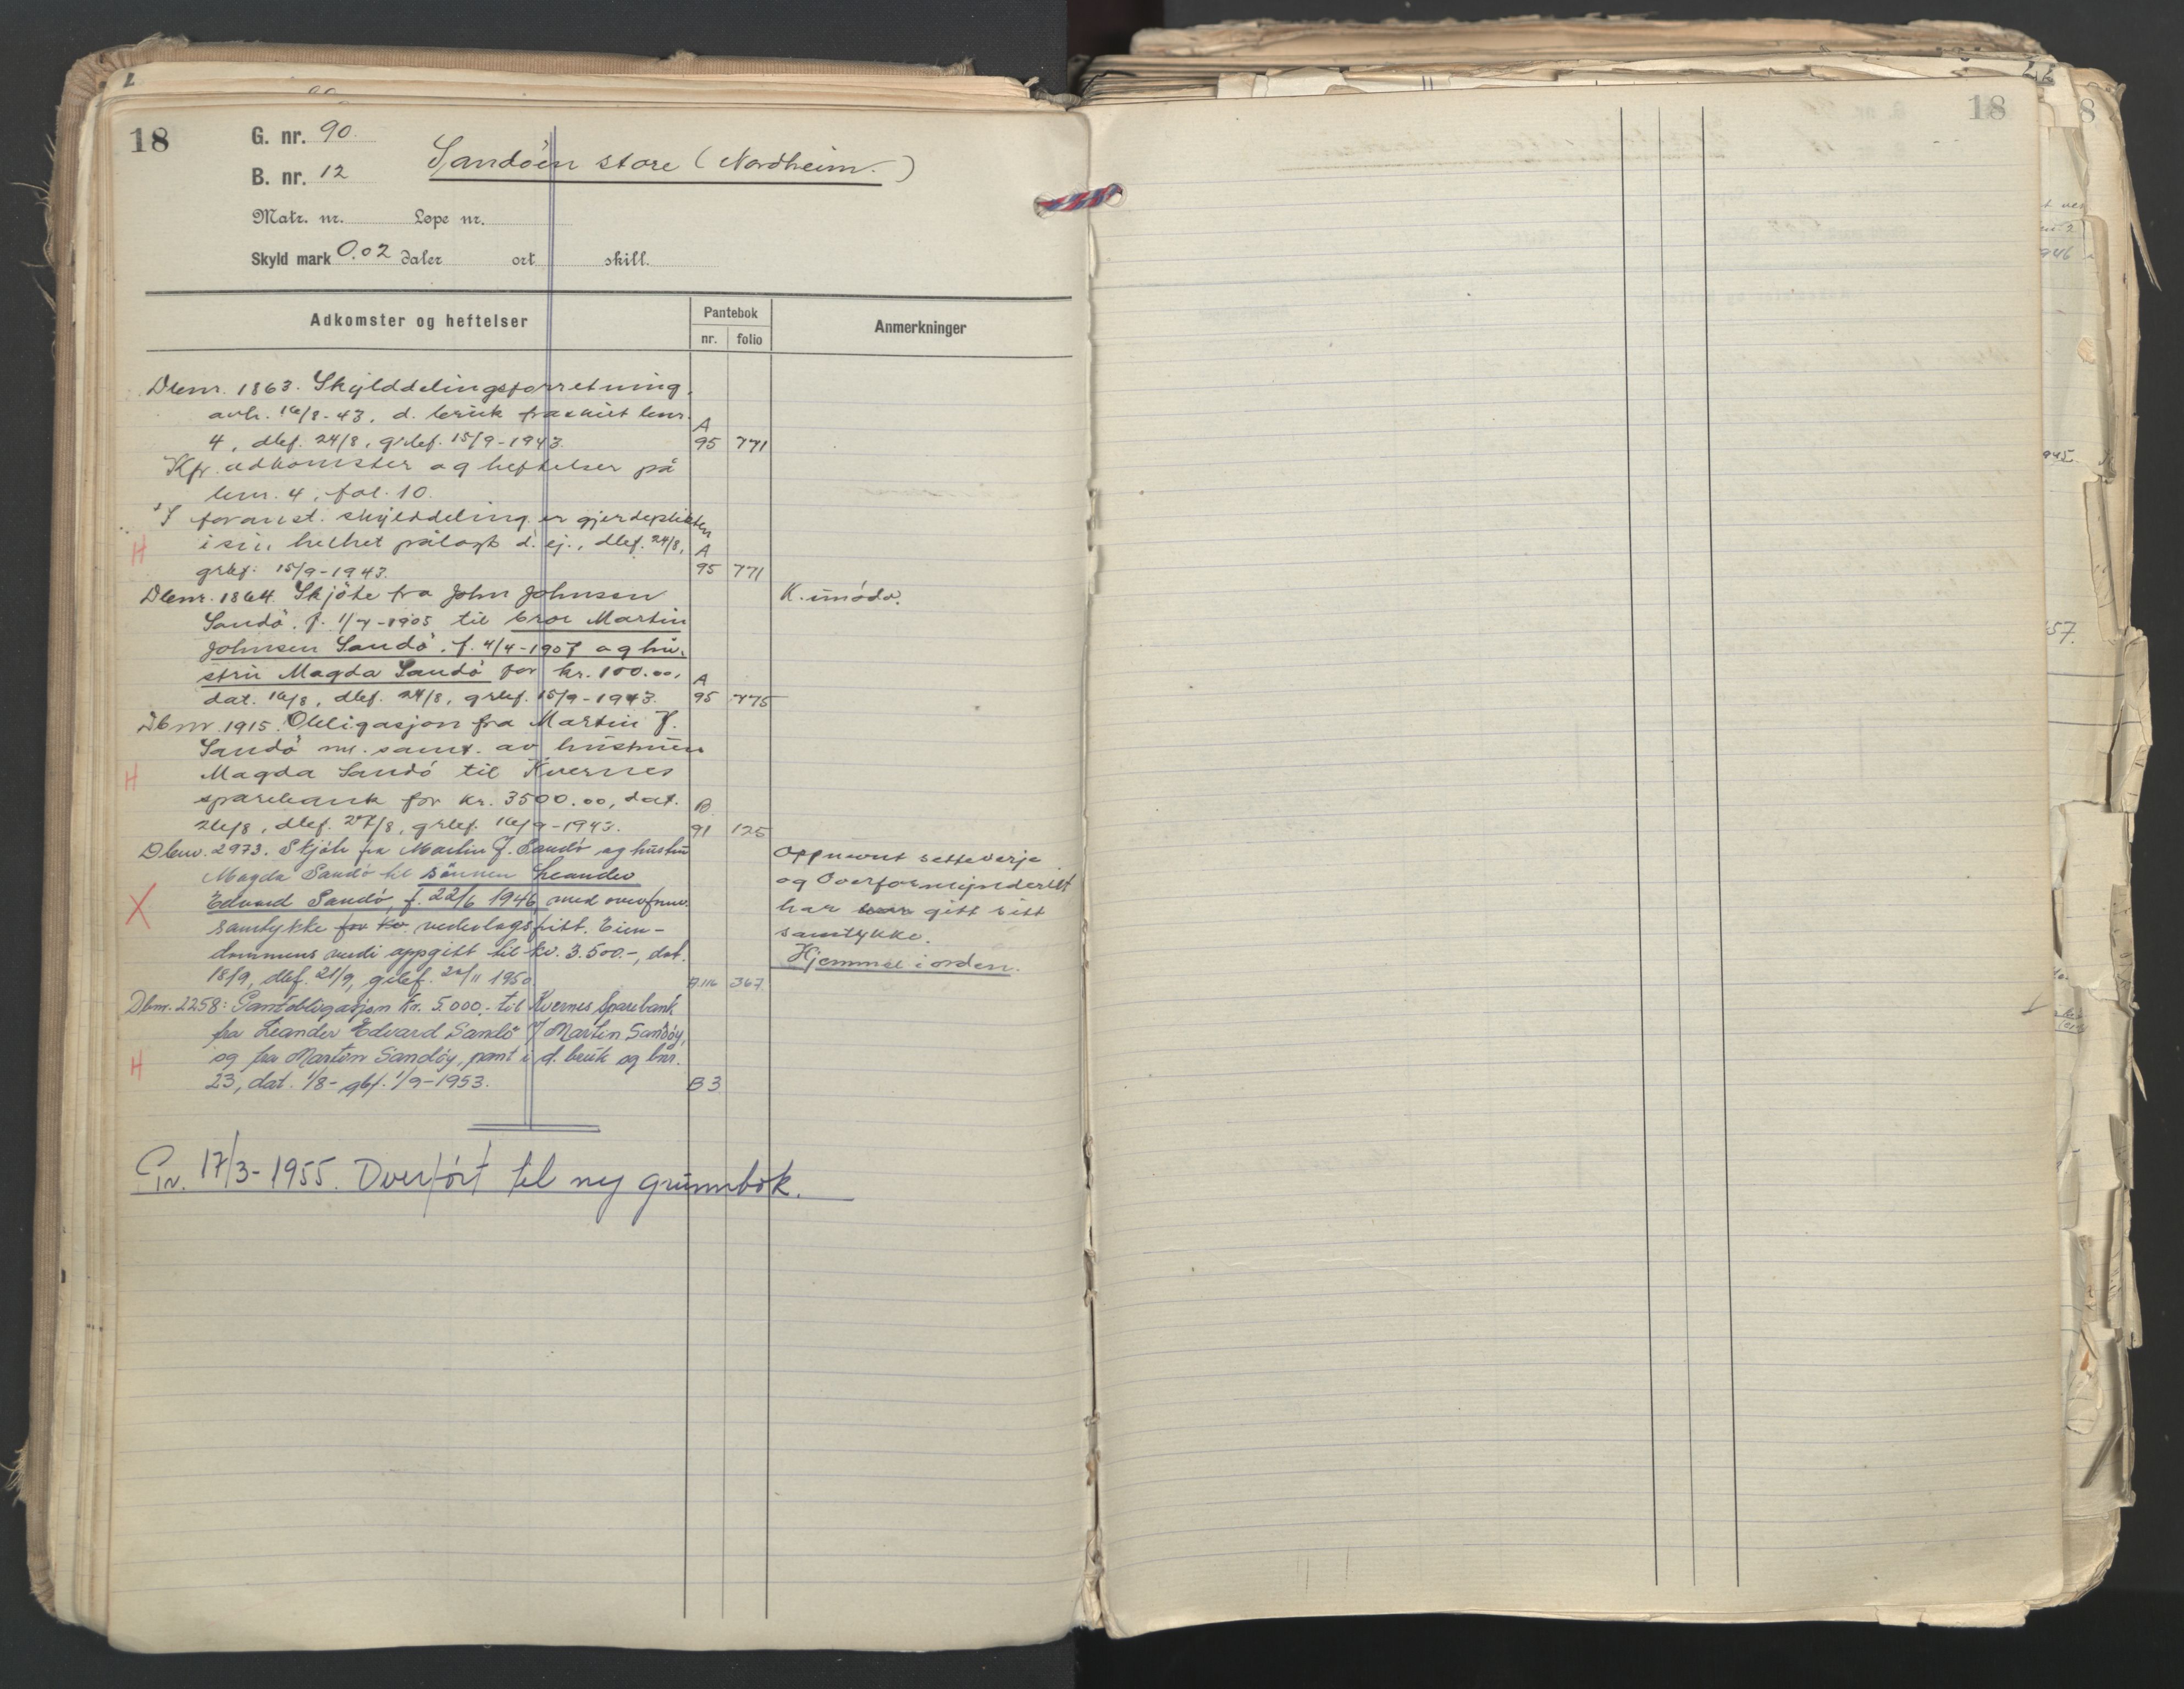 18
G. nr. 90.
B. nr. 12
Sandöen store (Nordheim.)
Matr. nr. Løpe nr.
Skyld mark 0.02 daler ort skill.
Adkomster og heftelser
Pantebok
nr. folio
Anmerkninger
Dbnr. 1863. Skylddelingsforretning,
avh. 16/8-43, d. bruk fraskilt bnr.
4, dbf. 24/8, grbf. 15/9-1943. A 95 771
Kfr. adkomster og heftelser på
bnr. 4, fol. 10.
I foranst. skylddeling er gjerdeplikten
H i sin helhet pålagt d. ej., dbf. 24/8,
grbf. 15/9-1943. A 95 771
Dbnr. 1864. Skjöte fra John Johnsen K. umödd.
Sandö, f. 1/7-1905 til bror Martin
Johnsen Sandö, f. 4/4-1907 og hu-
stru Magda Sandö for kr. 100.00,
dat. 16/8, dbf. 24/8, grbf. 15/9-1943. A 95 775
Dbnr. 1915. Obligasjon fra Martin J.
Sandö m. samt. av hustruen
H Magda Sandö til Kvernes
sparebank for kr. 3500.00, dat.
26/8, dbf. 27/8, grbf. 16/9-1943. B. 91 125
Dbnr. 2973. Skjöte fra Martin J. Sandö og hustru
Magda Sandö til sönnen Leander
X Edvard Sandö, f. 22/6 1946, med overform.
samtykke for kr. vederlagsfritt. Eien-
dommens verdi oppgitt til kr. 3.500.-, dat.
18/9, dbf. 21/9, grbf. 22/11 1950. A 116 367.
Oppnevnt setteverje
og Overformynderiet
har gitt sitt
samtykke.
Hjemmel i orden.
Dbnr. 2258: Panteobligasjon kr. 5.000.- til Kvernes Sparebank
fra Leander Edvard Sandö v/ Martin Sandöy,
og fra Martin Sandöy, pant i d. bruk og bnr.
H 23, dat. 1/8- gbf. 1/9-1953. B 3
17/3-1955. Overfört til ny grunnbok.
18